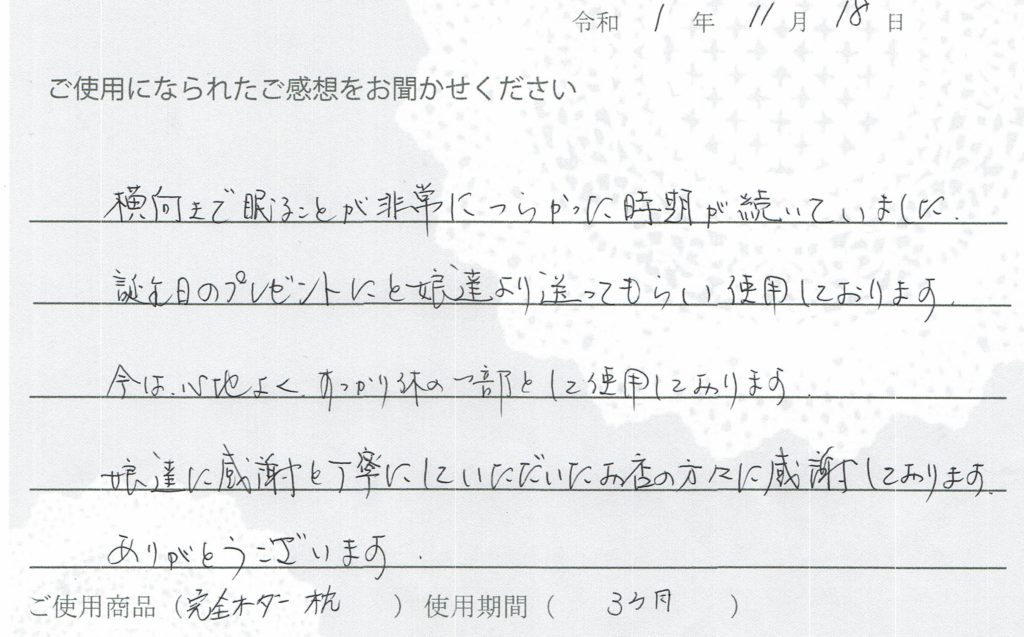 令和 1 年 11 月 18 日
ご使用になられたご感想をお聞かせください
横向きで眠ることが非常につらかった時期が続いていました.
誕生日のプレゼントにと娘達より送ってもらい使用しております.
今は、心地よく、すっかり体の一部として使用しております.
娘達に感謝と丁寧にしていただいたお店の方々に感謝しております.
ありがとうございます.
ご使用商品（完全オーダー枕 ）使用期間（ 3ヵ月 ）